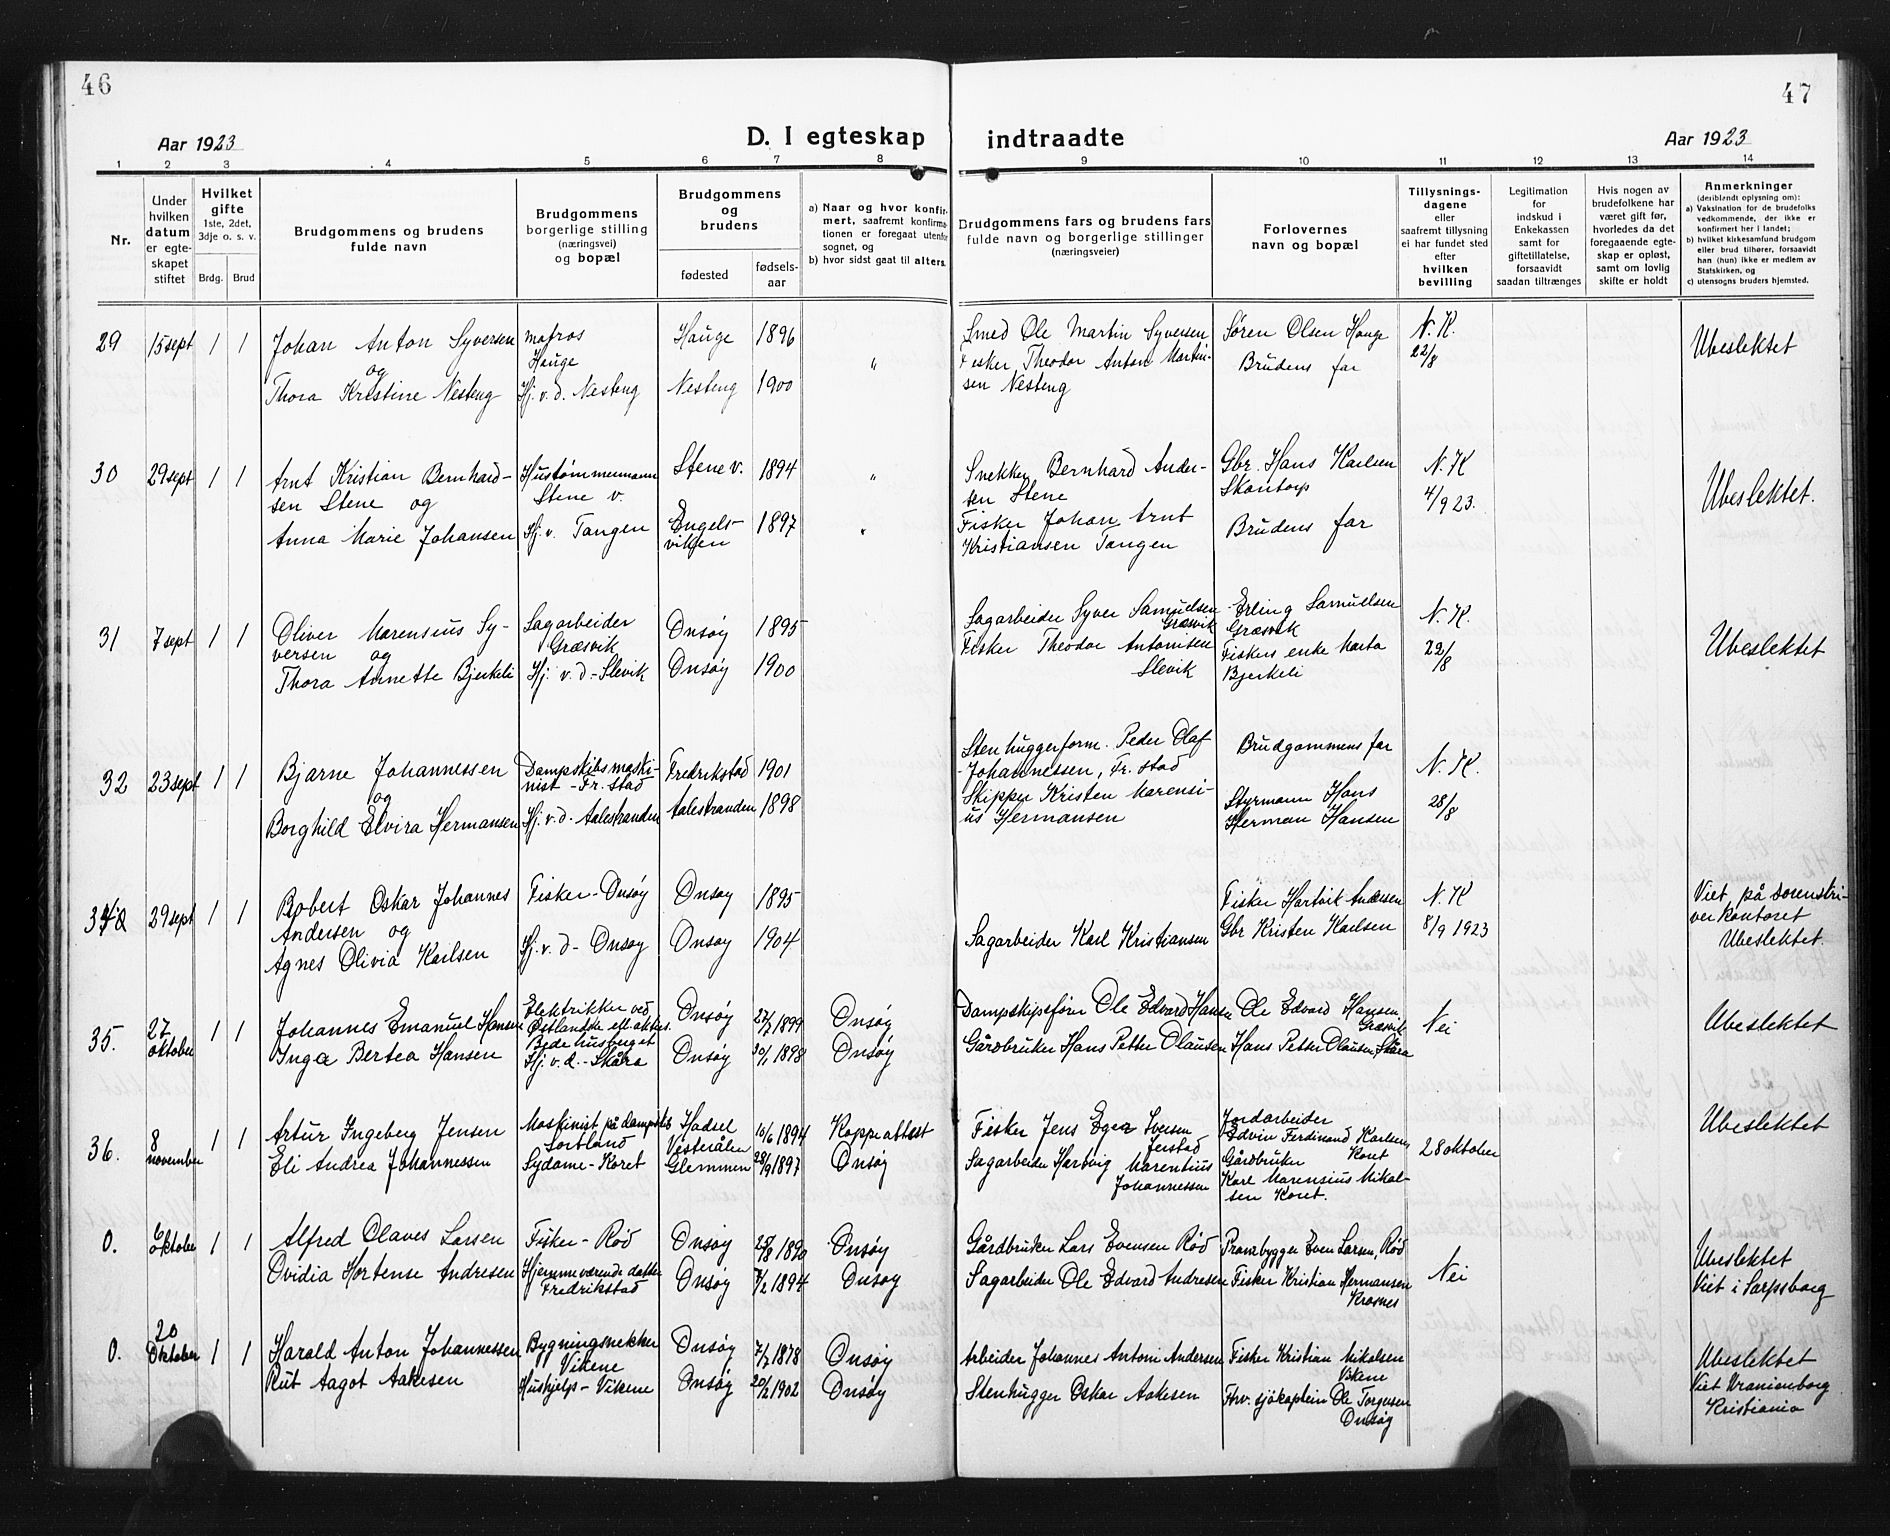 46
47
Aar 1923
D. I egteskap indtraadte
Aar 1923
1 2 3 4 5 6 7 8 9 10 11 12 13 14
Nr.
Under
hvilken
datum
er egte-
skapet
stiftet
Hvilket
gifte
1ste, 2det,
3dje o. s. v.
Brdg. Brud
Brudgommens og brudens
fulde navn
Brudgommens
borgerlige stilling
(næringsvei)
og bopæl
Brudgommens
og
brudens
fødested
fødsels-
aar
a) Naar og hvor konfir-
mert, saafremt konfirma-
tionen er foregaat utenfor
sognet, og
b) hvor sidst gaat til alters.
Brudgommens fars og brudens fars
fulde navn og borgerlige stillinger
(næringsveier)
Forlovernes
navn og bopæl
Tillysnings-
dagene
eller
saafremt tillysning
ei har fundet sted
efter
hvilken
bevilling
Legitimation
for
indskud i
Enkekassen
samt for
giftetillatelse,
forsaavidt
saadan tiltrænges
Hvis nogen av
brudefolkene har
været gift før,
hvorledes da det
foregaaende egte-
skap er opløst,
samt om lovlig
skifte er holdt
Anmerkninger
(deriblandt oplysning om):
a) Vaksination for de brudefolks
vedkommende, der ikke er
konfirmert her i landet;
b) hvilket kirkesamfund brudgom
eller brud tilhører, forsaavidt
han (hun) ikke er medlem av
Statskirken, og
c) utensogns bruders hjemsted.
29 15 sept 1 1
Johan Anton Syversen
og
Thora Kristine Nesteng
matros
Hauge
Hj. v. d. Nesteng
Hauge 1896
Nesteng 1900
"
Smed Ole Martin Syversen
Fisker Theodor Anton Martin-
sen Nesteng
Søren Olsen Hauge
Brudens far
N. K.
22/8
Ubeslektet
30 29 sept 1 1
Arnt Kristian Bernhard-
sen Stene og
Anna Marie Johansen
Hustømmermann
Stene v.
Hj. v. Tangen
Stene v. 1894
Engels-
viken 1897
"
"
Snekker Bernhard Ander-
sen Stene
Fisker Johan Arnt
Kristiansen Tangen
Gbr. Hans Karlsen
Skantorp
Brudens far
N. K
4/9 23.
Ubeslektet.
31 7 sept 1 1
Oliver Marensius Sy-
versen og
Thora Annette Bjerkeli
Sagarbeider
Græsvik
Hj. v. d - Slevik
Onsøy 1895
Onsøy 1900
Sagarbeider Syver Samuelsen
Græsvik
Fisker Theodor Antonisen
Slevik
Erling Samuelsen
Græsvik
Fiskers enke Marta
Bjerkeli
N. K.
22/8
Ubeslektet
32 23 sept 1 1
Bjarne Johannessen
og
Borghild Elvira Hermansen
Dampskibsmaski-
nist - Fr. stad
Hj. v. d. Aalestranden
Fredrikstad 1901
Aalestranden 1898
Stenhuggerform. Peder Olaf
Johannessen, Fr. stad
Skipper Kristen Marensi-
us Hermansen
Brudgommens far
Styrmann Hans
Herman Hansen
N. K.
28/8
29 sept 1 1
Robert Oskar Johannes
Andersen og
Agnes Olivia Karlsen
Fisker - Onsøy
Hj. v. d - Onsøy
Onsøy 1895
Onsøy 1904
Sagarbeider Karl Kristiansen
Fisker Hartvik Andersen
Gbr Kristen Karlsen
N. K
8/9 1923
Viet på sorenskri-
verkontoret
Ubeslektet.
35. 27
oktober 1 1
Johannes Emanuel Hansen
Inga Bertea Hansen
Elektrikker ved
Østlandske ell. akties.
Bedehusberget
Hj. v. d. - Skåra
Onsøy 27/7 1899
Onsøy 30/1 1898
Onsøy
Onsøy
Dampskipsfører Ole Edvard Hansen
Gårdbruker Hans Petter Olausen
Ole Edvard Hansen,
Græsvik
Hans Petter Olausen, Skåra
Nei
Ubeslektet
36. 8
november 1 1
Artur Ingeberg Jensen
Eli Andrea Johannessen
Maskinist på dampskib
Sortland
Sydame - Koret
Hadsel
Vesterålen 10/6 1894
Glemmen 28/9 1897
Koppeattest
Onsøy
Fisker Jens Eger Iversen
Jerstad
Sagarbeider Hartvig Marentius
Johannessen
Jordarbeider
Edvin Ferdinand Karlsen,
Koret
Gårdbruker
Karl Marensius Mikal-
sen Koret.
28 oktober
Ubeslektet
0. 6
oktober 1 1
Alfred Olaves Larsen
Ovidia Hortense Andresen
Fisker - Rød
Hjemmeværende datter
Fredrikstad
Onsøy 25/8 1890
Onsøy 7/2 1894
Onsøy
Onsøy
Gårdbruker Lars Evensen Rød
Sagarbeider Ole Edvard Andresen
Prambygger Even Larsen, Rød
Fisker Kristian Hermansen
Krosnes
Nei
Ubeslektet
Viet i Sarpsborg
0. 20
Oktober 1 1
Harald Anton Johannessen
Rut Aagot Aakesen
Bygningsnekker
Vikene
Hushjelp - Vikene
Onsøy 7/7 1878
Onsøy 20/2 1902
Onsøy
Onsøy
Arbeider Johannes Antoni Andersen
Stenhugger Oskar Aakesen
Fisker Kristian Mikalsen
Vikene
Fhv. sjökaptein Ole Torgersen
Onsøy
Ubeslektet
Viet Uranienborg
Kristiania